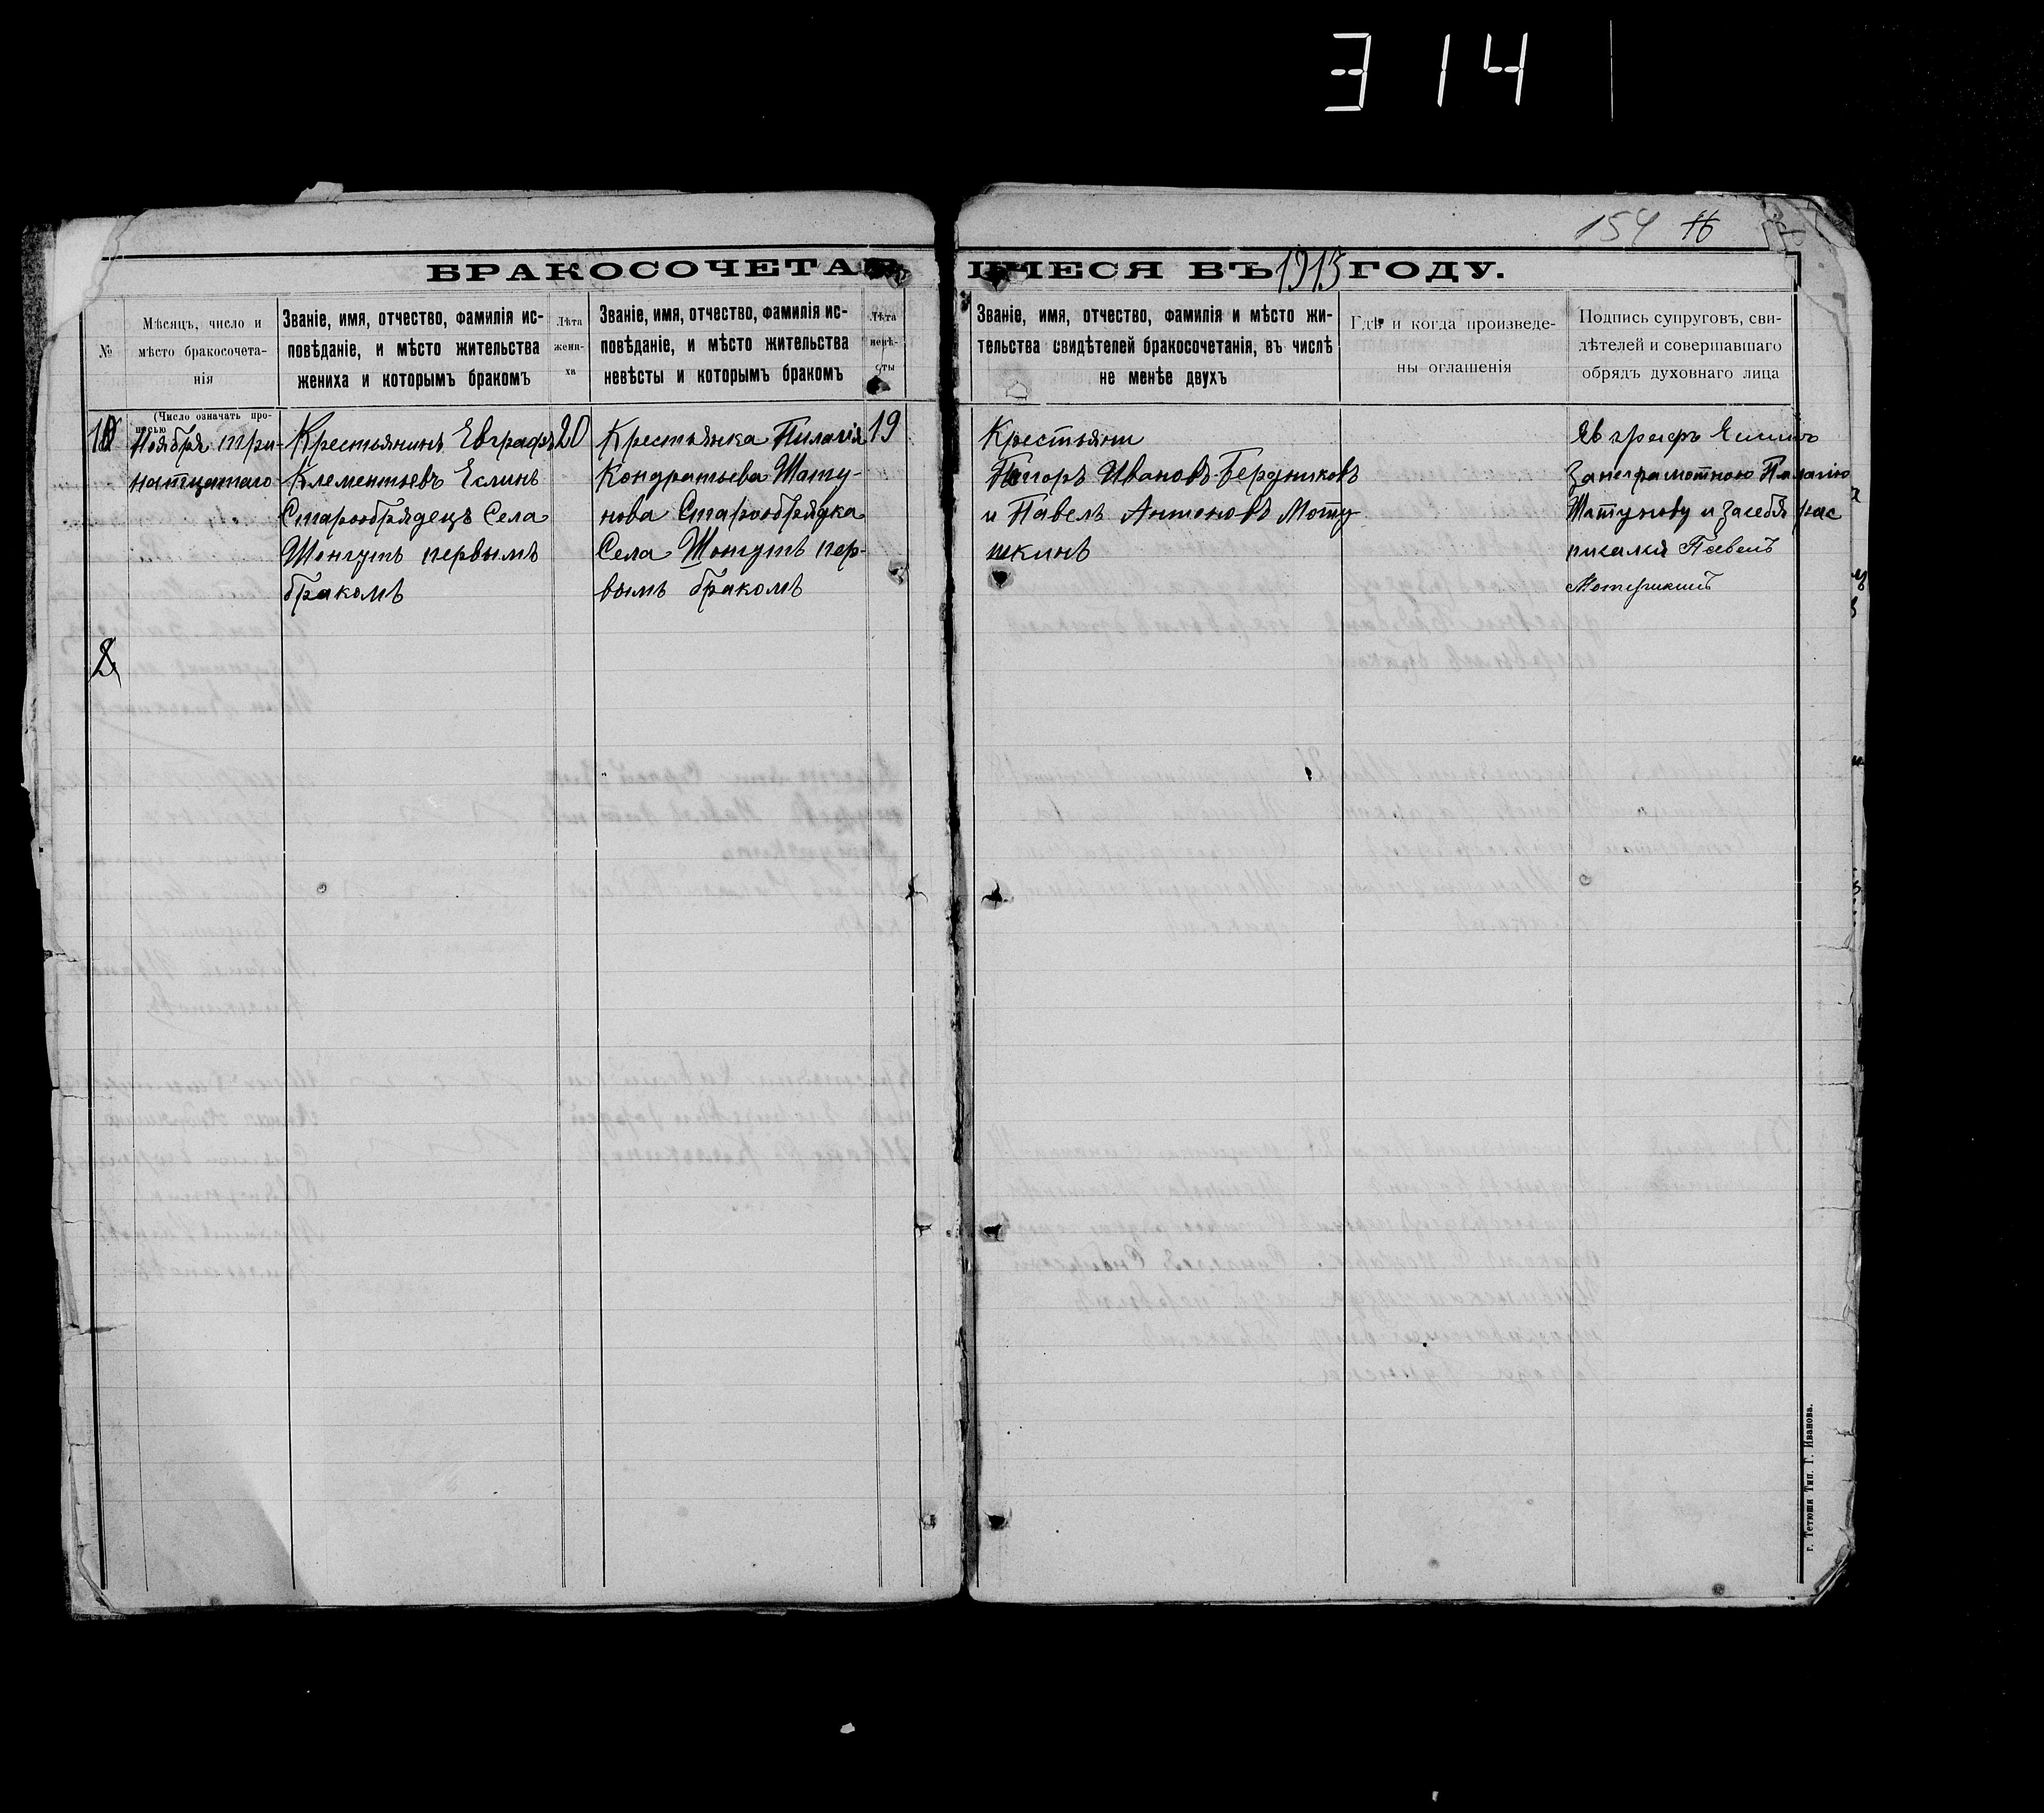 314
154 16
БРАКОСОЧЕТА ШЕСЯ ВЪ 1913 ГОДУ.
№
Мѣсяцъ, число и
мѣсто бракосочета-
нія
Званіе, имя, отчество, фамилія ис-
повѣданіе, и мѣсто жительства
жениха и которымъ бракомъ
Лѣта
жени-
ха
Званіе, имя, отчество, фамилія ис-
повѣданіе, и мѣсто жительства
невѣсты и которымъ бракомъ
Лѣта
невѣ-
сты
Званіе, имя, отчество, фамилія и мѣсто жи-
тельства свидѣтелей бракосочетанія, въ числѣ
не менѣе двухъ
Гдѣ и когда произведе-
ны оглашенія
Подпись супруговъ, сви-
дѣтелей и совершавшаго
обрядъ духовнаго лица
(Число означать про-
писью
10
Ноября три-
натцатаго
Крестьянинъ Евграфъ
Клементьевъ Еслинъ
Старообрядецъ Села
Шонгутъ первымъ
бракомъ
20
Крестьянка Пилагія
Кондратьева Шату-
нова Старообрядка
Села Шонгутъ пер-
вымъ бракомъ
19
Крестьяни
Егоръ Ивановъ Бердниковъ
и Павелъ Антоновъ Моту
шкинъ
Евграфъ Еслинъ
Занеграмотною Палагию
Шатунову и засебя рас
писалия Павелъ
Мотушкинъ
2
г. Тетюши Тип. Г. Иванова.